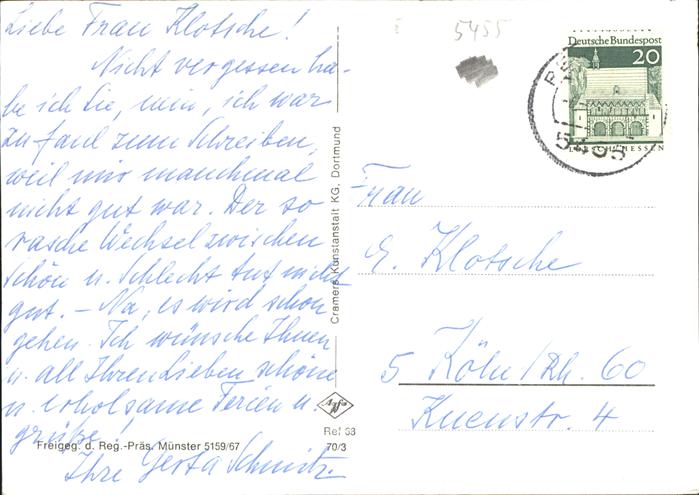 Liebe Frau Klotsche!
Nicht vergessen ha-
be ich Sie, nein, ich war
zu faul zum Schreiben,
weil mir manchmal
nicht gut war. Der so
rasche Wechsel zwischen
Schön u. Schlecht tut nicht
gut. – Na, es wird schon
gehen. Ich wünsche Ihnen
u. all Ihren Lieben schöne
u. erholsame Ferien u.
grüße!
Ihre Gerta Schmitz
Freigeg. d. Reg.-Präs. Münster 5159/67
Cramers Kunstanstalt KG, Dortmund
Agfa
Ref 68
70/3
5455
Deutsche Bundespost
20
LORSCH/HESSEN
Frau
E. Klotsche
5 Köln/Rh. 60
Kuenstr. 4